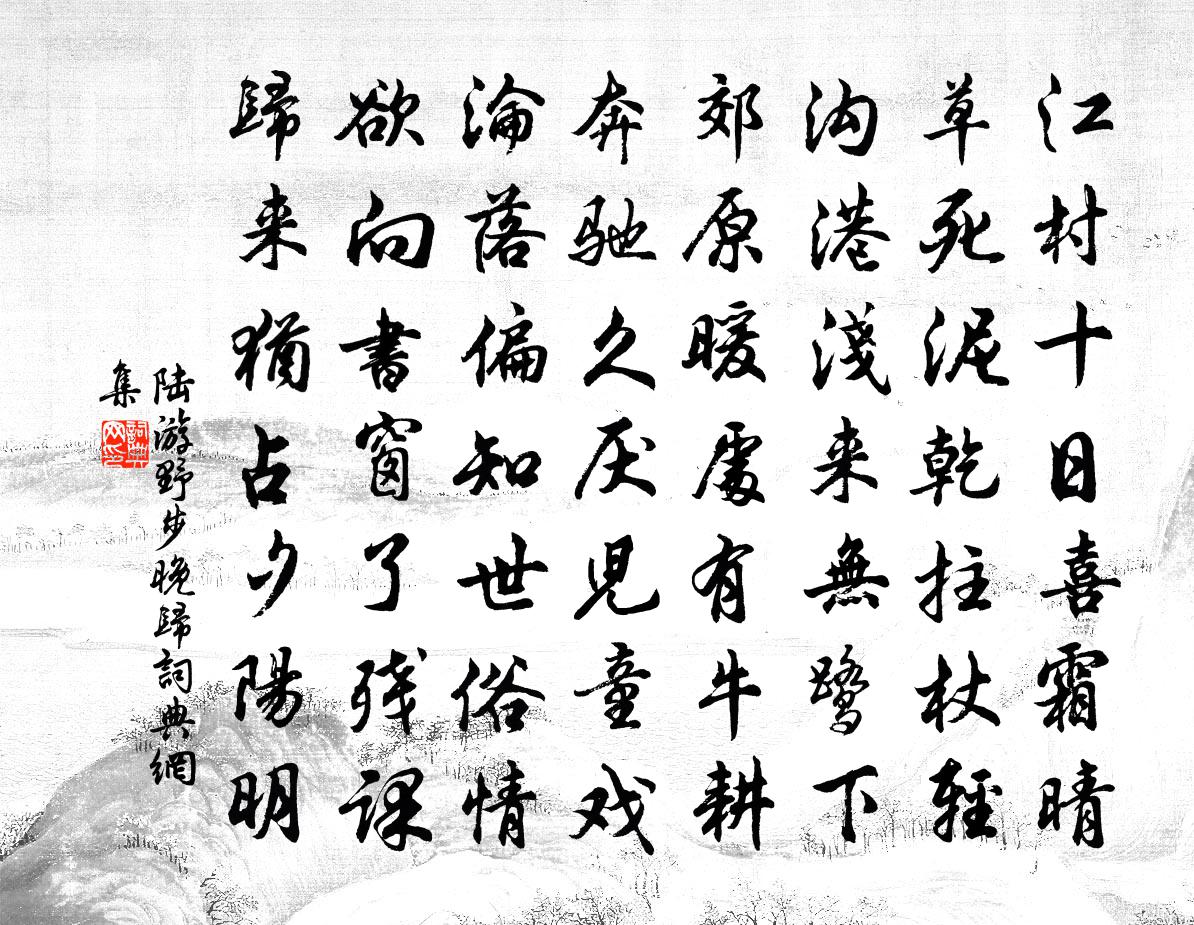 江村十日喜霜晴
草死泥乾拄杖輕
沟港淺来無鹭下
郊原暖處有牛耕
奔馳久厌児童戏
淪落偏知世俗情
欲向書窗了残課
歸来猶占夕陽明
陆游野步晚歸詞典網
集
詞典
网印